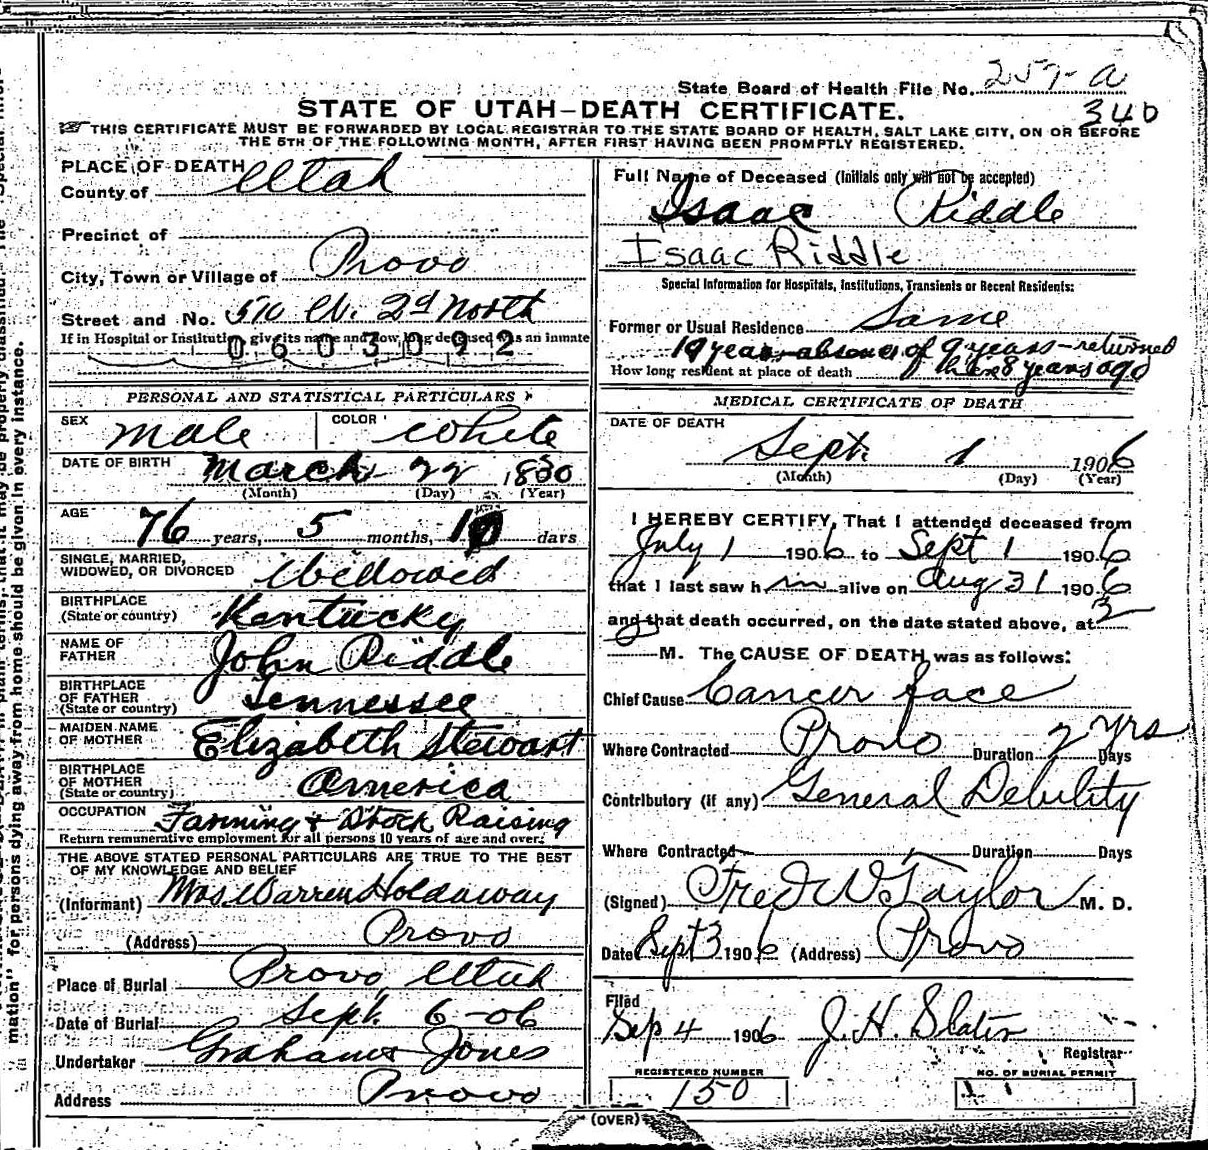 State Board of Health File No. 257-a
340
STATE OF UTAH—DEATH CERTIFICATE.
THIS CERTIFICATE MUST BE FORWARDED BY LOCAL REGISTRAR TO THE STATE BOARD OF HEALTH, SALT LAKE CITY, ON OR BEFORE
THE 5TH OF THE FOLLOWING MONTH, AFTER FIRST HAVING BEEN PROMPTLY REGISTERED.
PLACE OF DEATH
County of Utah
Precinct of
City, Town or Village of Provo
Street and No. 510 W. 2d North
If in Hospital or Institution, give its name and how long deceased was an inmate
0603092
PERSONAL AND STATISTICAL PARTICULARS
SEX Male COLOR White
DATE OF BIRTH March 22 1830
(Month) (Day) (Year)
AGE 76 years, 5 months, 10 days
SINGLE, MARRIED,
WIDOWED, OR DIVORCED Widowed
BIRTHPLACE
(State or country) Kentucky
NAME OF
FATHER John Riddle
BIRTHPLACE
OF FATHER
(State or country) Tennessee
MAIDEN NAME
OF MOTHER Elizabeth Stewart
BIRTHPLACE
OF MOTHER
(State or country) America
OCCUPATION Farming & Stock Raising
Return remunerative employment for all persons 10 years of age and over.
THE ABOVE STATED PERSONAL PARTICULARS ARE TRUE TO THE BEST
OF MY KNOWLEDGE AND BELIEF
(Informant) Mrs. Warren Holdaway
(Address) Provo
Place of Burial Provo, Utah
Date of Burial Sept. 6-06
Undertaker Graham & Jones
Address Provo
Full Name of Deceased (Initials only will not be accepted)
Isaac Riddle
Isaac Riddle
Special Information for Hospitals, Institutions, Transients or Recent Residents:
Former or Usual Residence Same
19 years absence of 9 years—returned
How long resident at place of death here 8 years ago
MEDICAL CERTIFICATE OF DEATH
DATE OF DEATH
Sept. 1 1906
(Month) (Day) (Year)
I HEREBY CERTIFY, That I attended deceased from
July 1 1906 to Sept 1 1906
that I last saw him alive on Aug 31 1906
and that death occurred, on the date stated above, at 3
M. The CAUSE OF DEATH was as follows:
Chief Cause Cancer face
Where Contracted Provo Duration 2 yrs Days
Contributory (if any) General Debility
Where Contracted Duration Days
(Signed) Fred W Taylor M. D.
Date Sept 3 1906 (Address) Provo
Filed
Sep 4 1906 J. H. Slater
Registrar
REGISTERED NUMBER
150
NO. OF BURIAL PERMIT
(OVER)
mation" for persons dying away from home should be given in every instance.